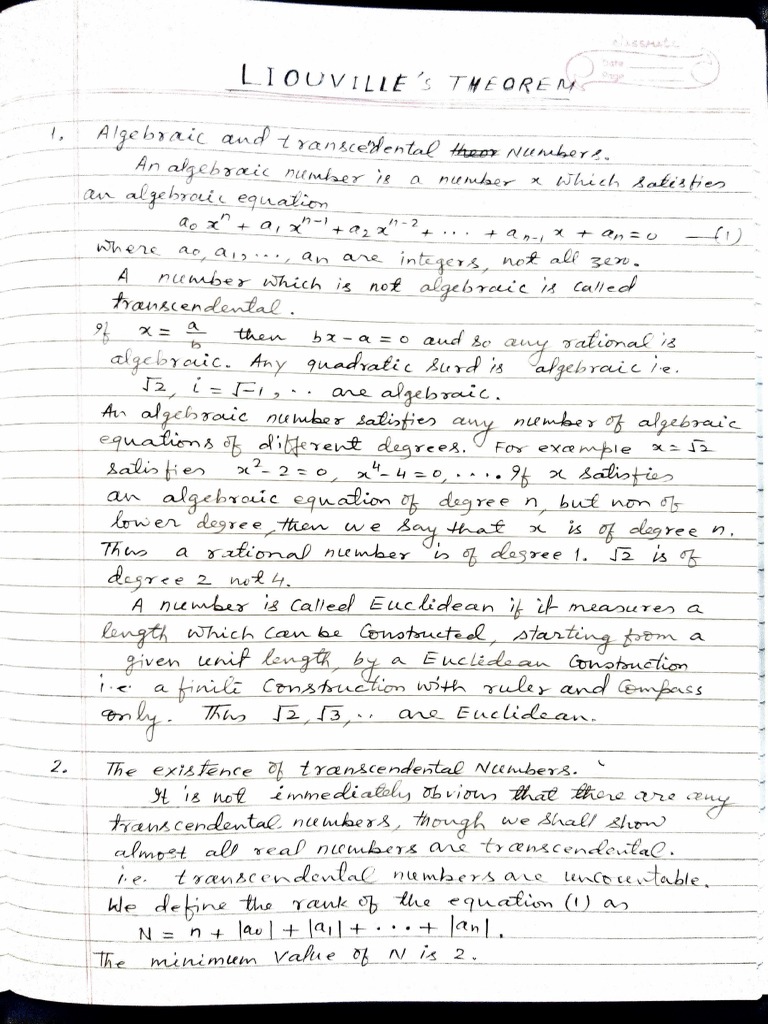 classmate
Date
Page
LIOUVILLE's THEOREM
1. Algebraic and transcedental Numbers.
An algebraic number is a number x which satisfies
an algebraic equation
a₀xⁿ + a₁xⁿ⁻¹ + a₂xⁿ⁻² + ... + aₙ₋₁x + aₙ = 0 —(1)
where a₀, a₁, ..., aₙ are integers, not all zero.
A number which is not algebraic is called
transcendental.
If x = a/b then bx-a=0 and so any rational is
algebraic. Any quadratic surd is algebraic i.e.
√2, i = √-1, .. are algebraic.
An algebraic number satisfies any number of algebraic
equations of different degrees. For example x=√2
satisfies x²-2=0, x⁴-4=0, .... If x satisfies
an algebraic equation of degree n, but non of
lower degree, then we say that x is of degree n.
Thus a rational number is of degree 1. √2 is of
degree 2 not 4.
A number is called Euclidean if it measures a
length which can be constructed, starting from a
given unit length, by a Euclidean construction
i.e. a finite construction with ruler and compass
only. Thus √2, √3, .. are Euclidean.
2. The existence of transcendental Numbers.
It is not immediately obvious that there are any
transcendental numbers, though we shall show
almost all real numbers are transcendental.
i.e. transcendental numbers are uncountable.
We define the rank of the equation (1) as
N = n + |a₀| + |a₁| + ... + |aₙ|.
The minimum value of N is 2.